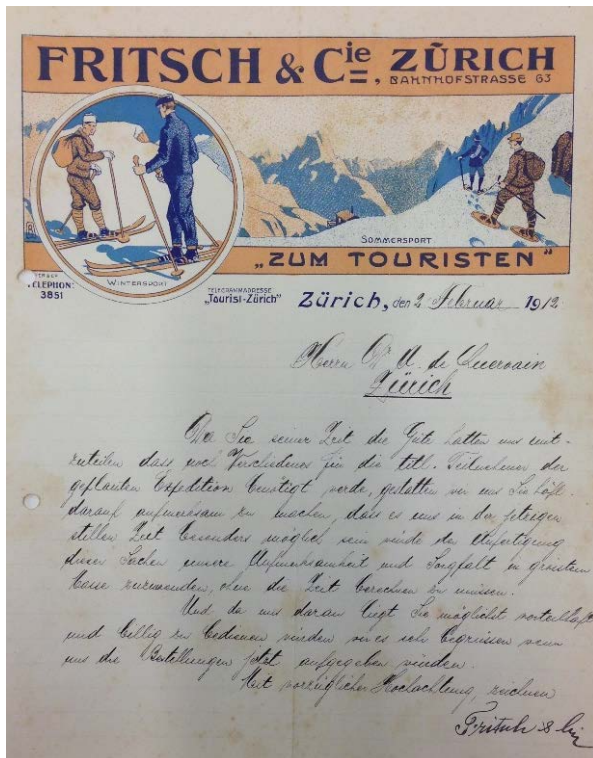 FRITSCH & Cie, ZÜRICH
BAHNHOFSTRASSE 63
SOMMERSPORT
„ZUM TOURISTEN"
WINTERSPORT
TELEPHON:
3851
TELEGRAMMADRESSE
„Tourist-Zürich"
Zürich, den 2. Februar 1912
Herrn Dr. A. de Quervain
Zürich
Da Sie seiner Zeit die Güte hatten uns mit-
zuteilen dass noch Verschiedenes für die titl. Teilnehmer der
geplanten Expedition benötigt werde, gestatten wir uns Sie höfl.
darauf aufmerksam zu machen, dass es uns in der jetzigen
stillen Zeit besonders möglich sein würde der Anfertigung
dieser Sachen unsere Aufmerksamkeit und Sorgfalt in grösstem
Masse zuzuwenden, ohne die Zeit berechnen zu müssen.
Und da uns daran liegt Sie möglichst vorteilhaft
und billig zu bedienen würden wir es sehr begrüssen wenn
uns die Bestellungen jetzt aufgegeben würden.
Mit vorzüglicher Hochachtung, zeichnen
Fritsch & Cie